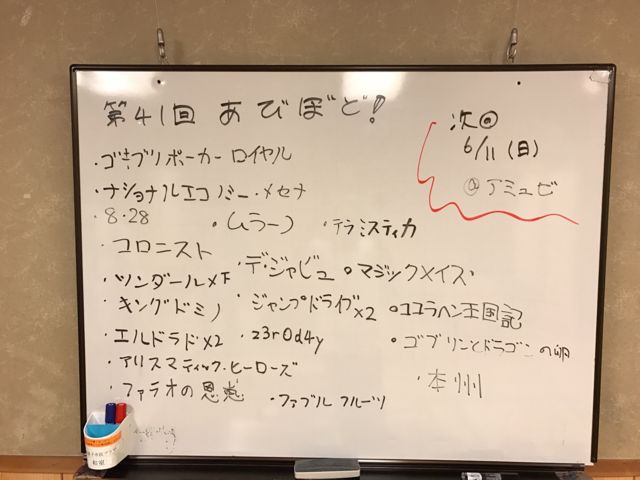 第41回 あびぼど!
次回
6/11(日)
@アミュゼ
・ゴキブリポーカー ロイヤル
・ナショナルエコノミー・メセナ
・8・28
・ムラーノ
・テラミスティカ
・コロニスト
・デ・ジャビュ
・マジックメイズ
・ツンダールメ下
・キングドミノ
・ジャンプドライブ×2
・ココラヘン王国記
・エルドラド×2
・z3r0d4y
・ゴブリンとドラゴンの卵
・アリスマティック・ヒーローズ
・ファラオの恩恵
・ファブルフルーツ
・本州
和室